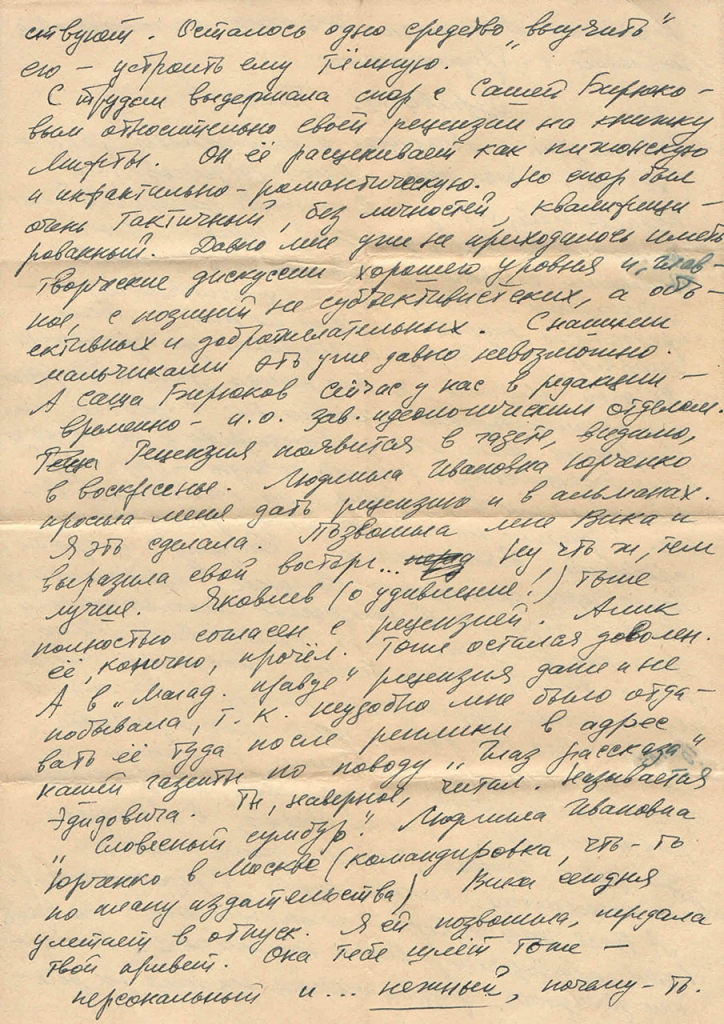 ствуют. Осталось одно средство „выучить"
его — устроить ему тёмную.
С трудом выдержала спор с Сашей Бирюко-
вым относительно своей рецензии на книжку
Мифты. Он её расценивает как пижонскую
и инфантильно-романтическую. Но спор был
очень тактичный, без личностей, квалифици-
рованный. Давно мне уже не приходилось иметь
творческие дискуссии хорошего уровня и, глав-
ное, с позиций не субъективистских, а объ-
ективных и доброжелательных. С нашими
мальчиками это уже давно невозможно.
А Саша Бирюков сейчас у нас в редакции —
временно — и.о. зав. идеологическим отделом.
Рецензия появится в газете, видимо,
в воскресенье. Людмила Ивановна Юрченко
просила меня дать рецензию и в альманах.
Я это сделала. Позвонила мне Вика и
выразила свой восторг... Ну что ж, тем
лучше. Яковлев (о удивление!) тоже
полностью согласен с рецензией. Алик
её, конечно, прочёл. Тоже остался доволен.
А в „Магад. правде" рецензия даже и не
побывала, т.к. неудобно мне было отда-
вать её туда после реплики в адрес
нашей газеты по поводу „Глаз рассказа"
Эдидовича. Ты, наверное, читал. Называется
„Словесный сумбур". Людмила Ивановна
Юрченко в Москве (командировка, что-то
по плану издательства) Вика сегодня
улетает в отпуск. Я ей позвонила, передала
твой привет. Она тебе шлёт тоже —
персональный и... нежный, почему-то.